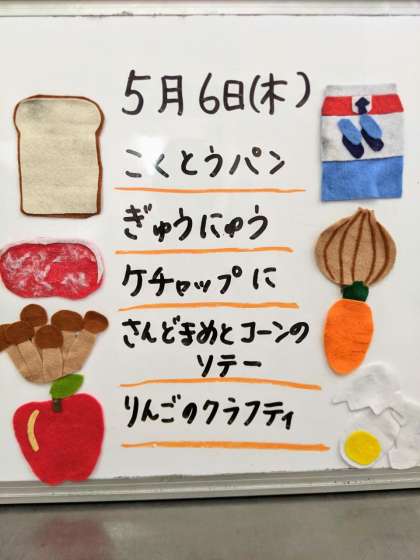 5月6日(木)
こくとうパン
ぎゅうにゅう
ケチャップに
さんどまめとコーンの
ソテー
りんごのクラフティ